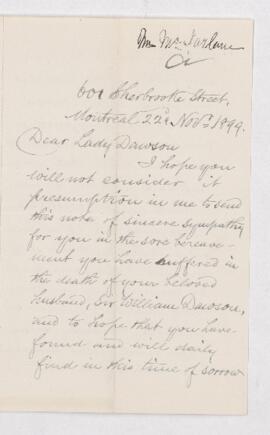 Wm McFarlane
Sherbrooke Street,
Montreal 22d Novr 1899.
Dear Lady Dawson
I hope you
will not consider it
presumption in me to send
this note of sincere sympathy
for you in the sore bereave-
ment you have suffered in
the death of your beloved
husband, Sir William Dawson,
and to hope that you have
found and will daily
find in this time of sorrow